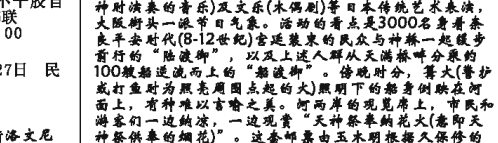 不十般百
海联
00
27日 民
斤洛文尼
神时演奏的音乐)及文乐(木偶剧)等日本传统艺术表演,
大阪街头一派节日气象。活动的看点是3000名身着奈
良平安时代(8-12世纪)宫廷装束的民众与神轿一起缓步
前行的“陆渡御”,以及上述人群从天满桥畔分乘约
100艘船逆流而上的“船渡御”。傍晚时分,篝火(警护
或打鱼时为照亮周围点起的火)照明下的船身倒映在河
面上,有种难以言喻之美。河两岸的观览席上,市民和
游客们一边纳凉,一边观赏“天神祭奉纳花火(意即天
神祭供奉的烟花)”。这套邮票由玉木明根据久保修的